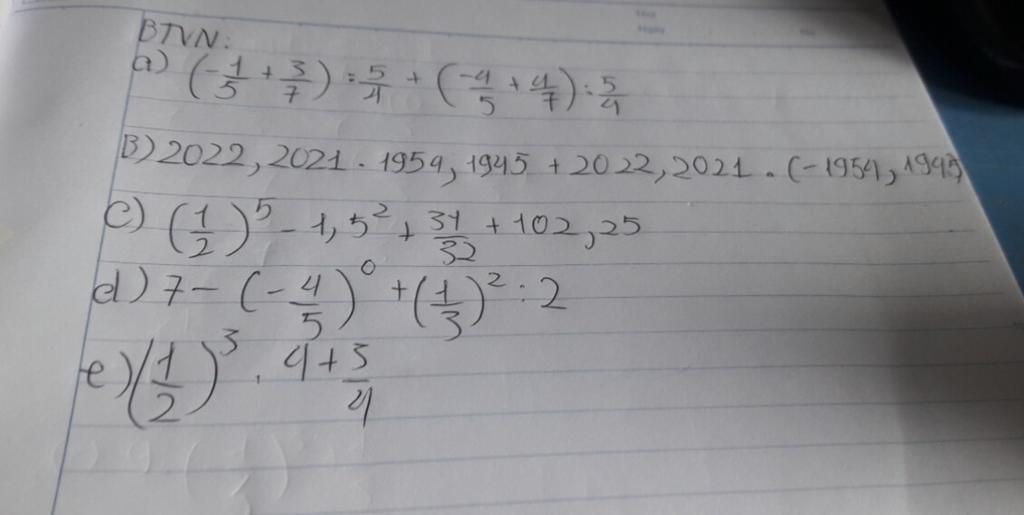 BTVN:
a) (-1/5 + 3/7) : 5/4 + (-4/5 + 4/7) : 5/4
B) 2022,2021 . 1954,1945 + 2022,2021 . (-1954,1945)
c) (1/2)^5 - 1,5^2 + 31/32 + 102,25
d) 7 - (-4/5)^0 + (1/3)^2 : 2
e) (1/2)^3 . 4 + 3/4